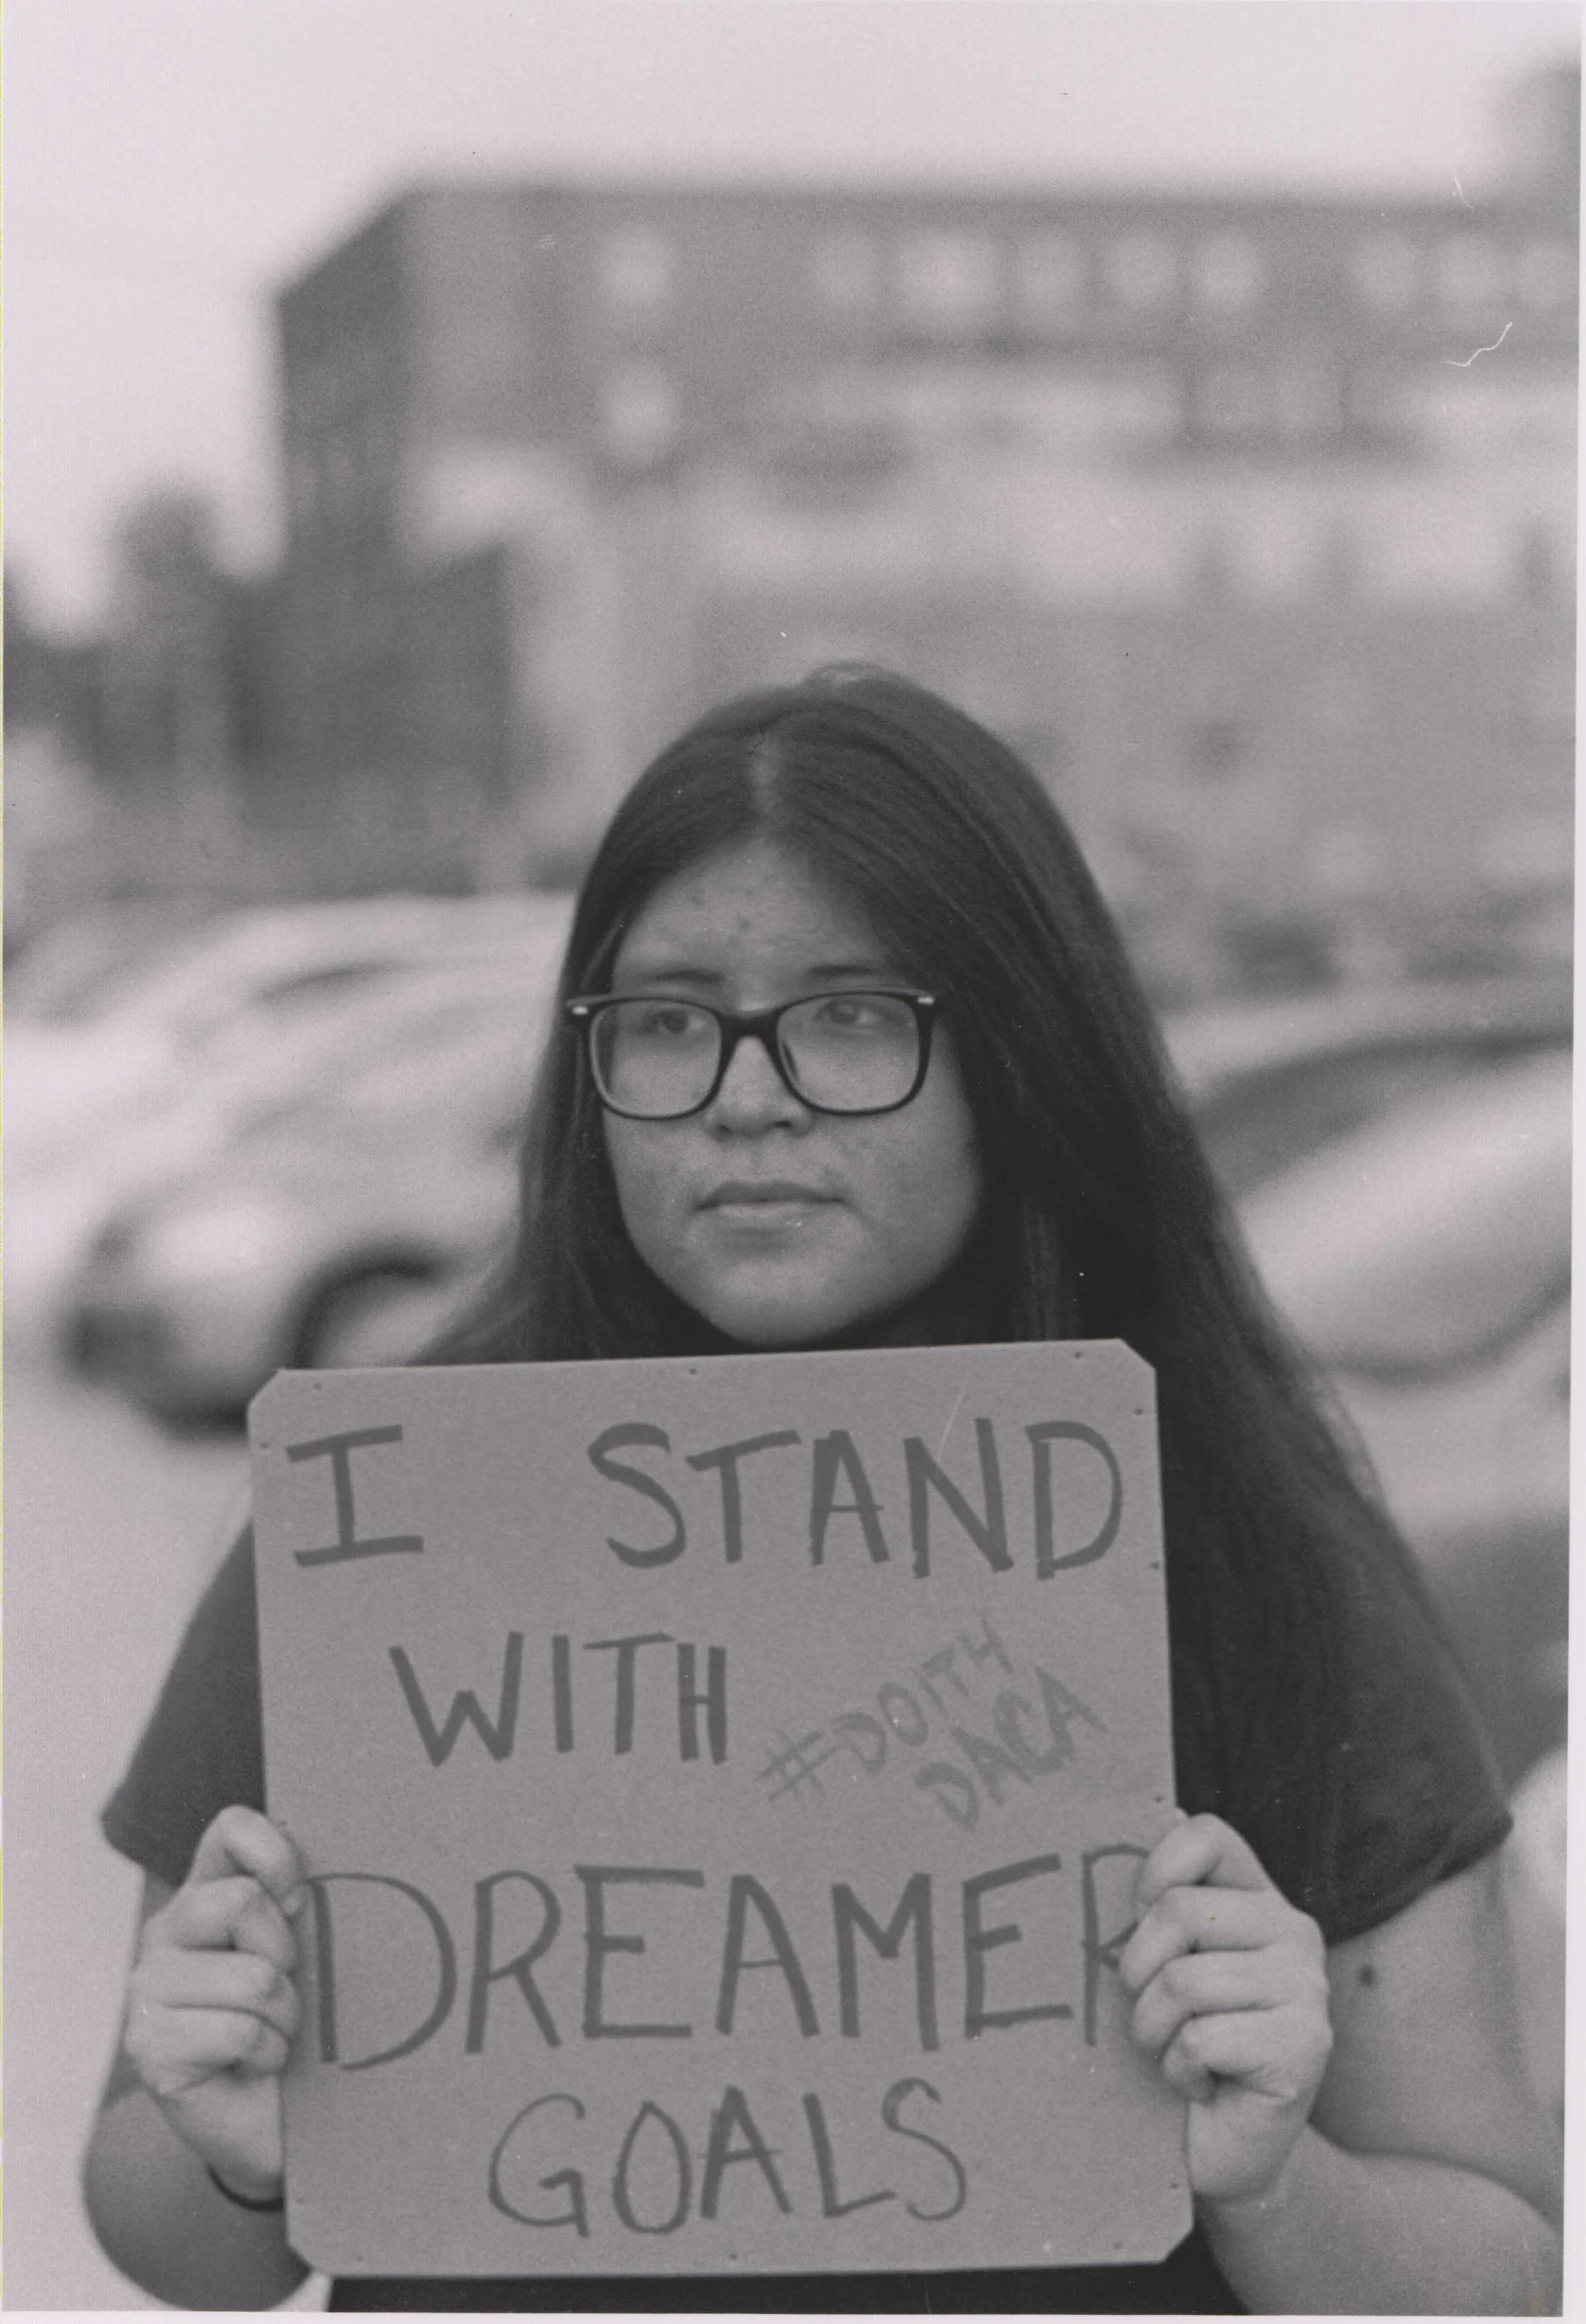 I STAND
WITH
#DOITH
DACA
DREAMER
GOALS